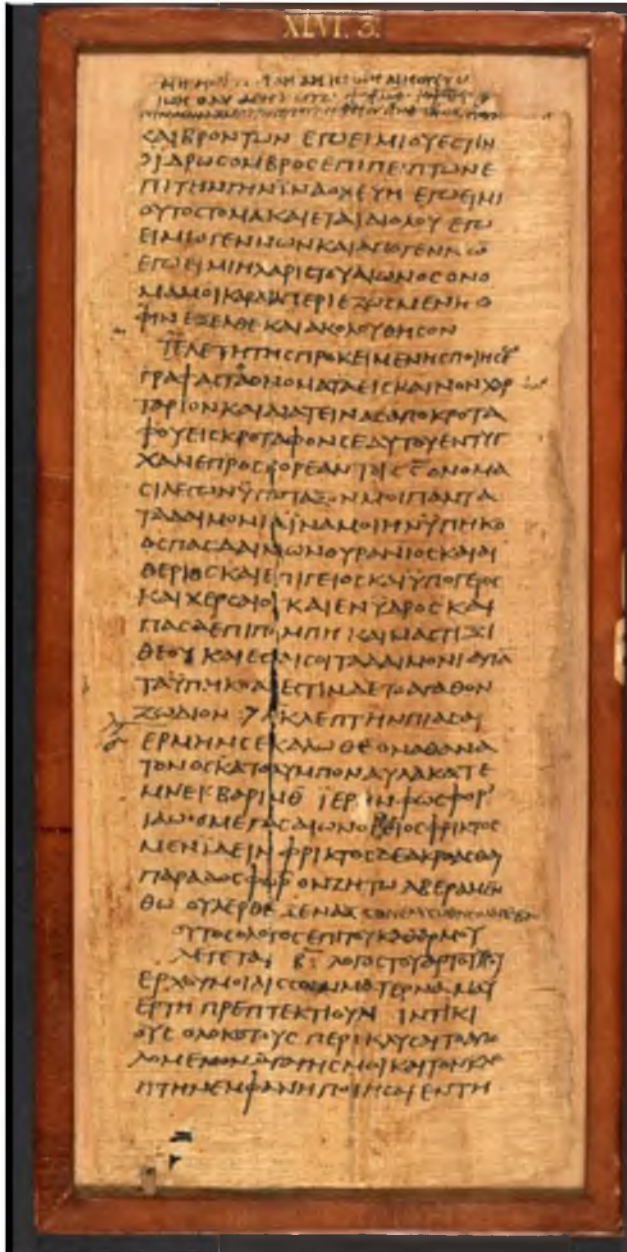 XLVI. 3.
ΚΑΙΒΡΟΝΤΩΝ ΕΓΩΕΙΜΙΟΥΕΣΤΙΝ
ΟΙΔΡΩΣΟΜΒΡΟΣΕΠΙΠΕΙΠΤΩΝΕ
ΠΙΤΗΝΓΗΝΪΝΑΟΧΕΥΗ ΕΓΩΕΙΜΙ
ΟΥΤΟΣΤΟΜΑΚΑΙΕΤΑΙΔΙΟΛΟΥ ΕΓΩ
ΕΙΜΙΟΓΕΝΝΩΝΚΑΙΑΠΟΓΕΝΝΩ
ΕΓΩΕΙΜΙΗΧΑΡΙΣΤΟΥΑΙΩΝΟΣΟΝΟ
ΜΑΜΟΙΚΑΡΔΙΑΠΕΡΙΕΖΩΣΜΕΝΗΟ
ΦΙΝΕΞΕΛΘΕΚΑΙΑΚΟΛΟΥΘΗΣΟΝ
ΤΕΛΕΤΗΤΗΣΠΡΟΚΕΙΜΕΝΗΣΠΟΙΗΣΕΩ
ΓΡΑΨΑΣΤΑΟΝΟΜΑΤΑΕΙΣΚΑΙΝΟΝΧΑΡ
ΤΑΡΙΟΝΚΑΙΔΙΑΤΕΙΝΑΣΑΠΟΚΡΟΤΑ
ΦΟΥΕΙΣΚΡΟΤΑΦΟΝΣΕΑΥΤΟΥΕΝΤΥΓ
ΧΑΝΕΠΡΟΣΒΟΡΕΑΝΤΟΙΣ ΟΝΟΜΑ
ΣΙΛΕΓΩΝΫΠΟΤΑΞΟΝΜΟΙΠΑΝΤΑ
ΤΑΔΑΙΜΟΝΙΑΪΝΑΜΟΙΗΝΫΠΗΚΟ
ΟΣΠΑΣΔΑΙΜΩΝΟΥΡΑΝΙΟΣΚΑΙΑΙ
ΘΕΡΙΟΣΚΑΙΕΠΙΓΕΙΟΣΚΑΙΫΠΟΓΕΙΟΣ
ΚΑΙΧΕΡΣΑΙΟΣΚΑΙΕΝΫΔΡΟΣΚΑΙ
ΠΑΣΑΕΠΙΠΟΜΠΗ ΚΑΙΜΑΣΤΙΞΙ
ΘΕΟΥ ΚΑΙΕΣΤΑΙΣΟΙΤΑΔΑΙΜΟΝΙΑΠΑ
ΤΑΫΠΗΚΟΑ ΕΣΤΙΝΔΕΤΟΑΓΑΘΟΝ
ΖΩΔΙΟΝ ΚΛΕΠΤΗΝΠΙΑΣΑΙ
ΕΡΜΗΝΣΕΚΑΛΩΘΕΟΝΑΘΑΝΑ
ΤΟΝΟΣΚΑΤΟΛΥΜΠΟΝΑΥΛΑΚΑΤΕ
ΜΝΕΙΣΒΑΡΙΝΘ ΙΕΡΗΝΦΩΣΦΟΡ
ΙΑΩΟΜΕΓΑΣΑΙΩΝΟΒΙΟΣΦΡΙΚΤΟΣ
ΜΕΝΙΔΕΙΝ ΦΡΙΚΤΟΣΔΕΑΚΡΟΑΣΘΑΙ
ΠΑΡΑΔΟΣΦΩΡ ΟΝΖΗΤΩ ΑΒΕΡΑΜΕΝ
ΘΩ ΟΥΛΕΡΘΕ ΞΕΝΑΞ
ΟΥΤΟΣΟΛΟΓΟΣΕΠΙΤΟΥΚΑΘΑΡΜΟΥ
ΛΕΓΕΤΑΙ ΛΟΓΟΣΤΟΥΑΡΤΟΥ
ΕΡΧΟΥΜΟΙΛΙΣΣΟΙΝΜΑΤΕΡΝΑΜΑΥ
ΕΡΤΗ ΠΡΕΠΤΕΚΤΙΟΥΝ ΙΝΤΙΚΙ
ΟΥΣ ΟΛΟΚΟΤΟΥΣ ΠΕΡΙΚΛΥΣΑΙΤΟΑΠΟ
ΛΟΜΕΝΟΝΑΓΑΓΗΣΜΟΙΚΑΙΤΟΝΚΛΕ
ΠΤΗΝΕΜΦΑΝΗΠΟΙΗΣΑΙΕΝΤΗ